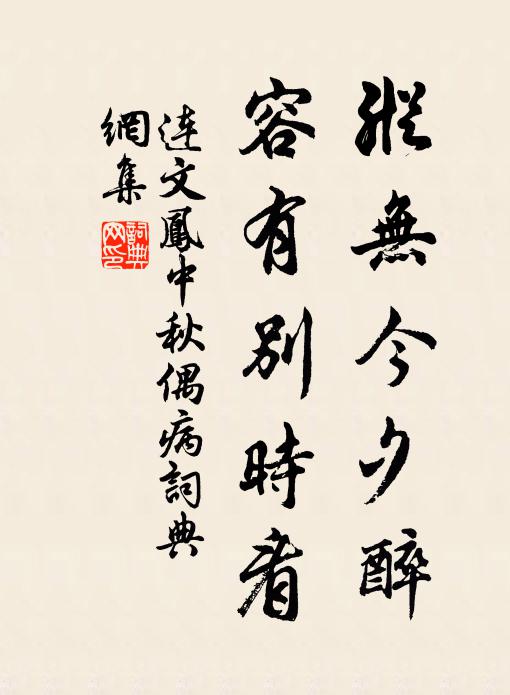 縱無今夕醉
容有別時看
連文鳳中秋偶病詞典
網集
詞典網印